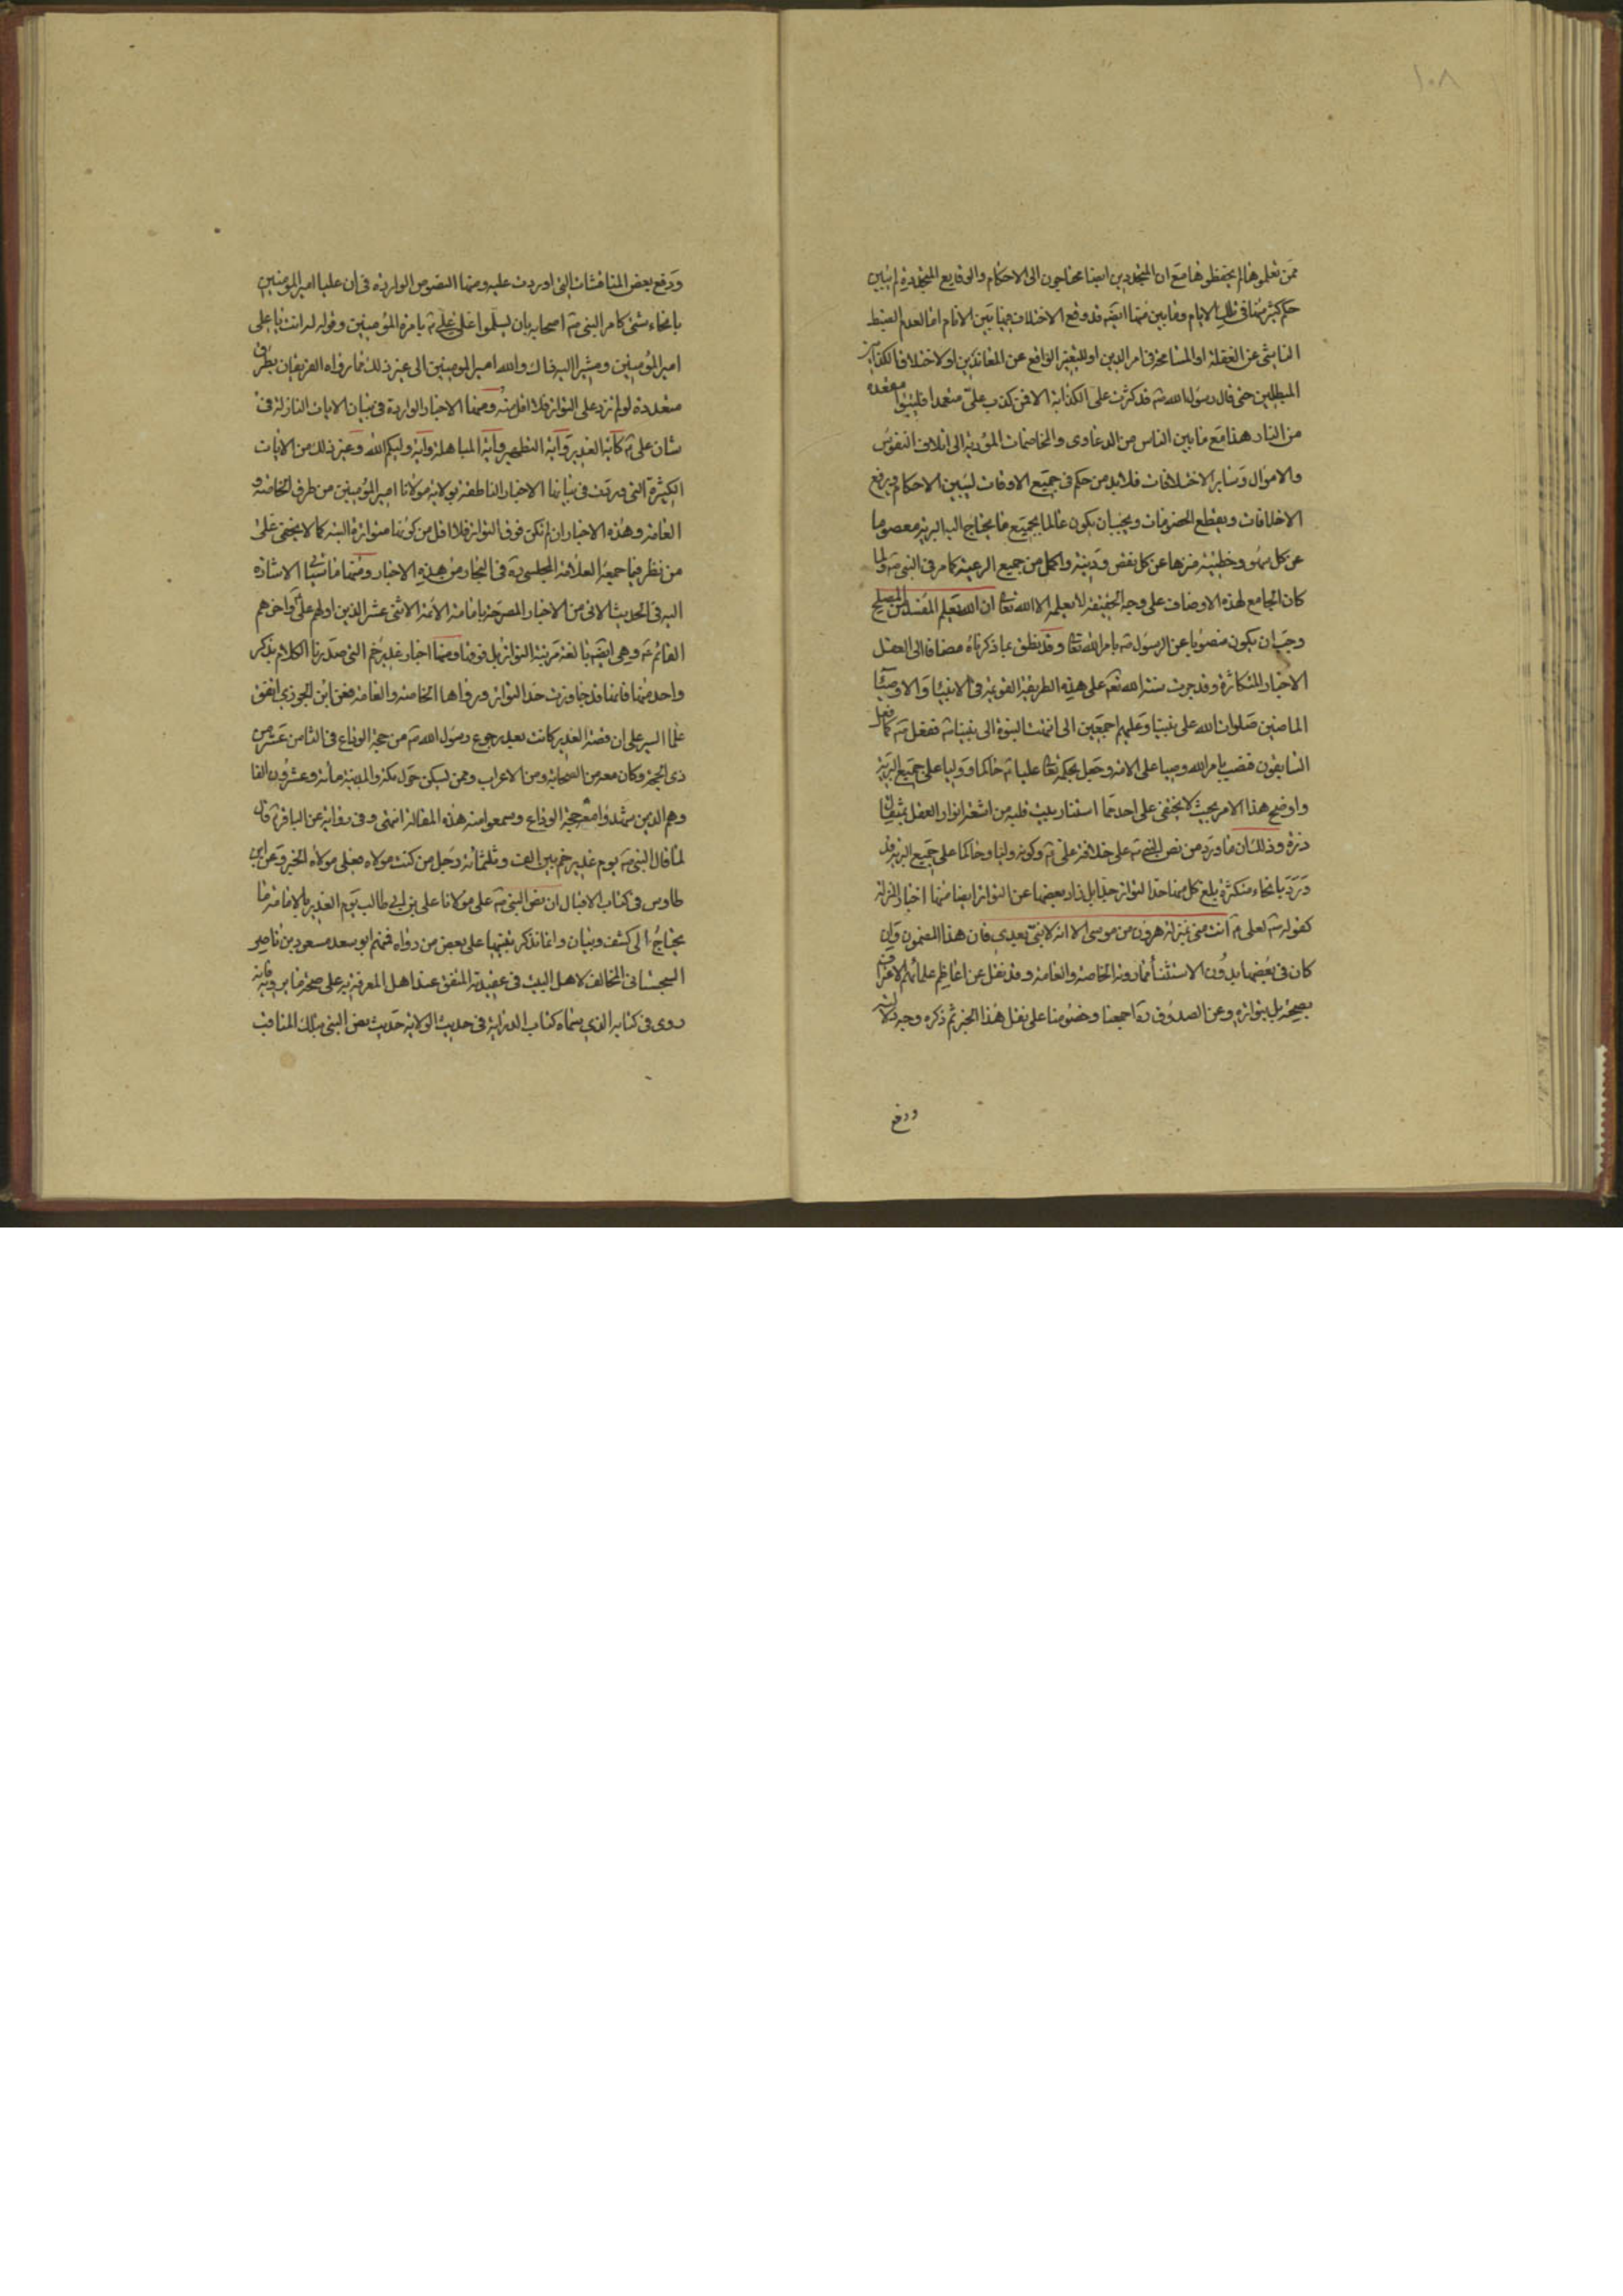 ١٠٨
ممن تعلموها لم يحفظوها مع ان المتجددين ايضا محتاجون الى الاحكام والوقايع المتجددة لم يتبين
حكم كثير منها في تلك الايام وما بين منها ايضه قد وقع الاختلاف فيما بين الانام اما لعدم الضبط
الناشئ عن الغفلة او المسامحة في امر الدين او للتغير الواقع عن المعاندين او لاختلاف الكذابين
المبطلين حتى قال رسول الله ص قد كثرت على الكذابة الا فمن كذب علي متعمدا فليتبوا مقعده
من النار هذا مع ما بين الناس من الدعاوى والمخاصمات المؤدية الى اتلاف النفوس
والاموال وساير الاختلافات فلابد من حكم في جميع الاوقات ليبين الاحكام ويرفع
الاختلافات ويقطع الخصومات ويجب ان يكون عالما بجميع ما يحتاج اليه البرية معصوما
عن كل سهو وخطيئة منزها عن كل نقص ودنية واكمل من جميع الرعية كما مر في النبي ص ولما
كان الجامع لهذه الاوصاف على وجه الحقيقة لا يعلمه الا الله تعا ان الله يعلم المفسد من المصلح
وجب ان يكون منصوبا عن الرسول ص بامر الله تعا وقد نطق بما ذكرناه مضافا الى العقل
الاخبار المتكاثرة وقد جرت سنة الله تعم على هذه الطريقة القويمة في الانبيا والاوصيا
الماضين صلوات الله على نبينا وعليهم اجمعين الى ان تمت النبوة الى نبينا ص ففعل ص كما فعل
السابقون فنصب بامر الله وصيا على الامة وجعل بحكمه تعا عليا ع حاكما ووليا على جميع البرية
واوضح هذا الامر بحيث لا يخفى على احد مما استنار بيت قلبه من اشعة انوار العقل بمثقال
ذرة وذلك ان ما ورد من نص النبي ص على خلافة علي ع وكونه وليا وحاكما على جميع البرية قد
ورد بانحاء متكثرة بلغ كل منها حد التواتر جدا بل زاد بعضها عن التواتر ايضا منها اخبار المنزلة
كقوله ص لعلي ع انت مني بمنزلة هرون من موسى الا انه لا نبي بعدي فان هذا المضمون وان
كان في بعضها بدون الاستثناء مما روته الخاصة والعامة وقد نقل عن اعاظم علمائهم الاعتراف
بصحته بل بتواتره وعن الصدوق ره اجمعنا وخصومنا على نقل هذا الخبر ثم ذكره وجه دلالته
ودفع
ودفع بعض المناقشات التي اوردت عليه ومنها النصوص الواردة في ان عليا امير المؤمنين
بانحاء شتى كامر النبي ص اصحابه بان يسلموا على علي ع بامرة المؤمنين وقوله له انت يا علي
امير المؤمنين ومشيرا اليه ذاك والله امير المومنين الى غير ذلك مما رواه الفريقان بطرق
متعددة لو لم تزد على التواتر فلا اقل منه ومنها الاخبار الواردة في بيان الايات النازلة في
شان علي ع كآية الغدير وآية التطهير وآية المباهلة وآية وليكم الله وغير ذلك من الايات
الكثيرة التي وردت في بيانها الاخبار الناطقة بولاية مولانا امير المؤمنين من طرق الخاصة و
العامة وهذه الاخبار ان لم تكن فوق التواتر فلا اقل من كونها متواترة البتة كما لا يخفى على
من نظر فيما جمعه العلامة المجلسي ره في البحار من هذه الاخبار ومنها ما سياتي الاشارة
اليه في الحديث الاتي من الاخبار المصرحة بامامة الائمة الاثنى عشر الذين اولهم علي وآخرهم
القائم ع وهي ايضه بالغة مرتبة التواتر بل فوقها ومنها اخبار غدير خم التي صدرنا الكلام بذكر
واحد منها فانها قد جاوزت حد التواتر ورواها الخاصة والعامة فعن ابن الجوزي اتفق
علما السير على ان قصة الغدير كانت بعد رجوع رسول الله ص من حجة الوداع في الثامن عشر من
ذى الحجة وكان معه من الصحابة ومن الاعراب وممن يسكن حول مكة والمدينة مائة وعشرون الفا
وهم الذين شهدوا معه حجة الوداع وسمعوا منه هذه المقالة انتهى وفى رواية عن الباقر ع قال
لما قال النبي ص يوم غدير خم بين الف وثلثمائة رجل من كنت مولاه فعلي مولاه الخبر وعن ابن
طاوس في كتاب الاقبال ان نص النبي ص على مولانا علي بن ابي طالب يوم الغدير بالامامة ما
يحتاج الى كشف وبيان وانما نذكر تنبيها على بعض من رواه فمنهم ابو سعد مسعود بن ناصر
السجستاني المخالف لاهل البيت في عقيدته المتفق عند اهل المعرفة به على صحة ما يرويه
روى في كتابه الذي سماه كتاب الدراية في حديث الولاية حديث نص النبي بتلك المناقب